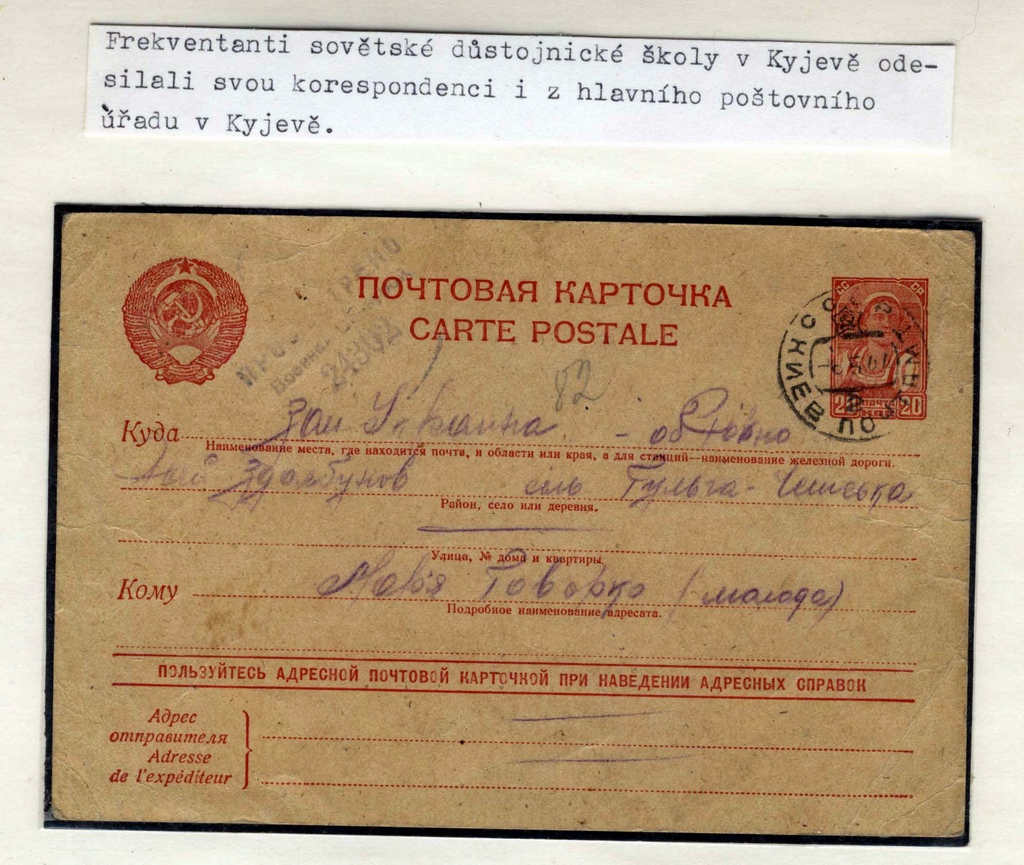 Frekventanti sovětské důstojnické školy v Kyjevě ode-
silali svou korespondenci i z hlavního poštovního
úřadu v Kyjevě.
ПРОСМОТРЕНО
Военной
24802
ПОЧТОВАЯ КАРТОЧКА
CARTE POSTALE
СССР
КИЕВ
ПОЧТА
20 20
82
Куда
Зап Украина - об Ровно
Наименование места, где находится почта, и области или края, а для станций—наименование железной дороги.
Здолбунов село Гульча-Чешська
Район, село или деревня.
Улица, № дома и квартиры.
Кому
Говорко (молода)
Подробное наименование адресата.
ПОЛЬЗУЙТЕСЬ АДРЕСНОЙ ПОЧТОВОЙ КАРТОЧКОЙ ПРИ НАВЕДЕНИИ АДРЕСНЫХ СПРАВОК
Адрес
отправителя
Adresse
de l'expéditeur